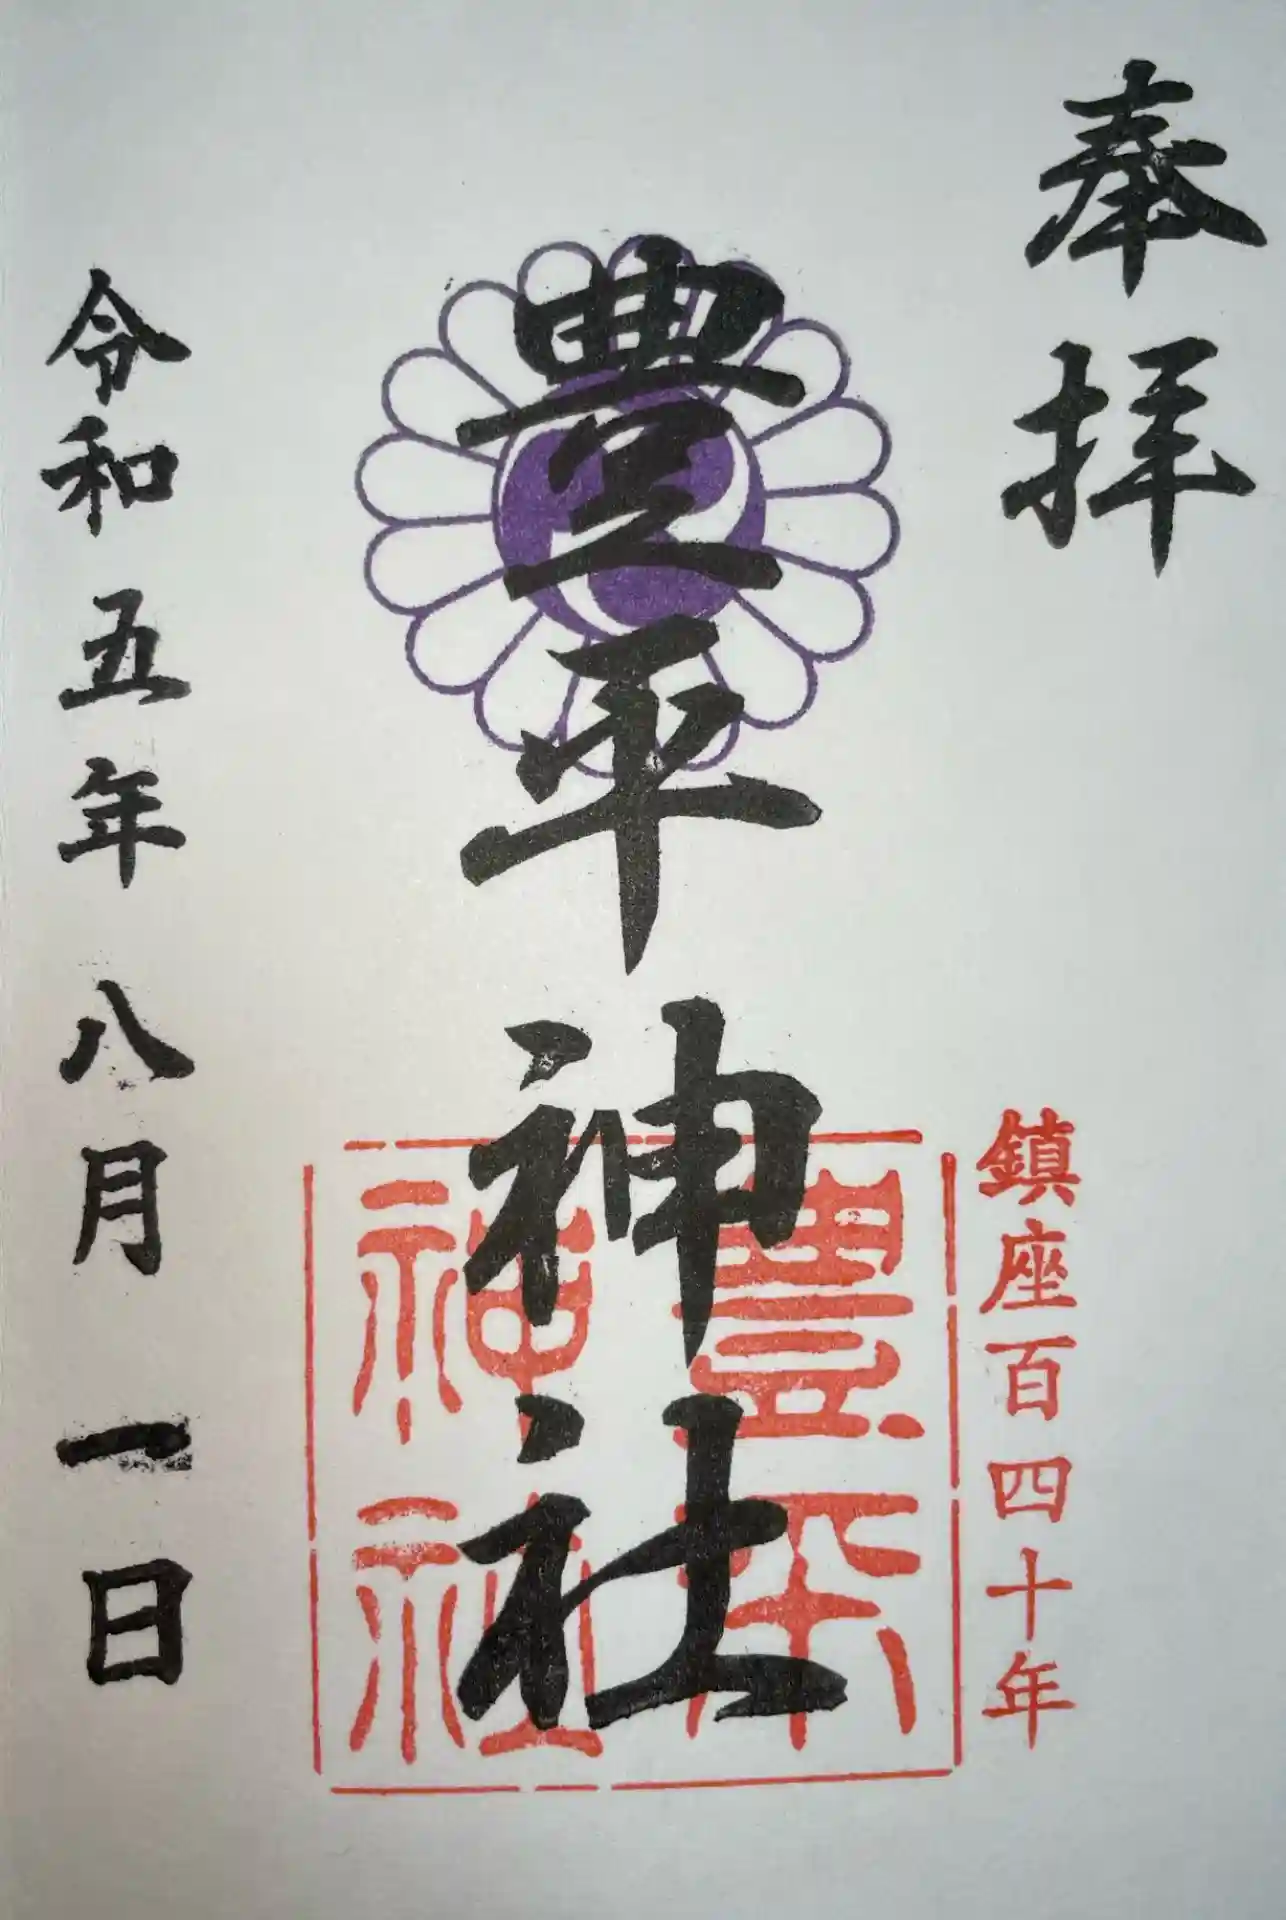 奉拝
鎮座百四十年
豊平神社
豊平
神社
令和五年八月一日